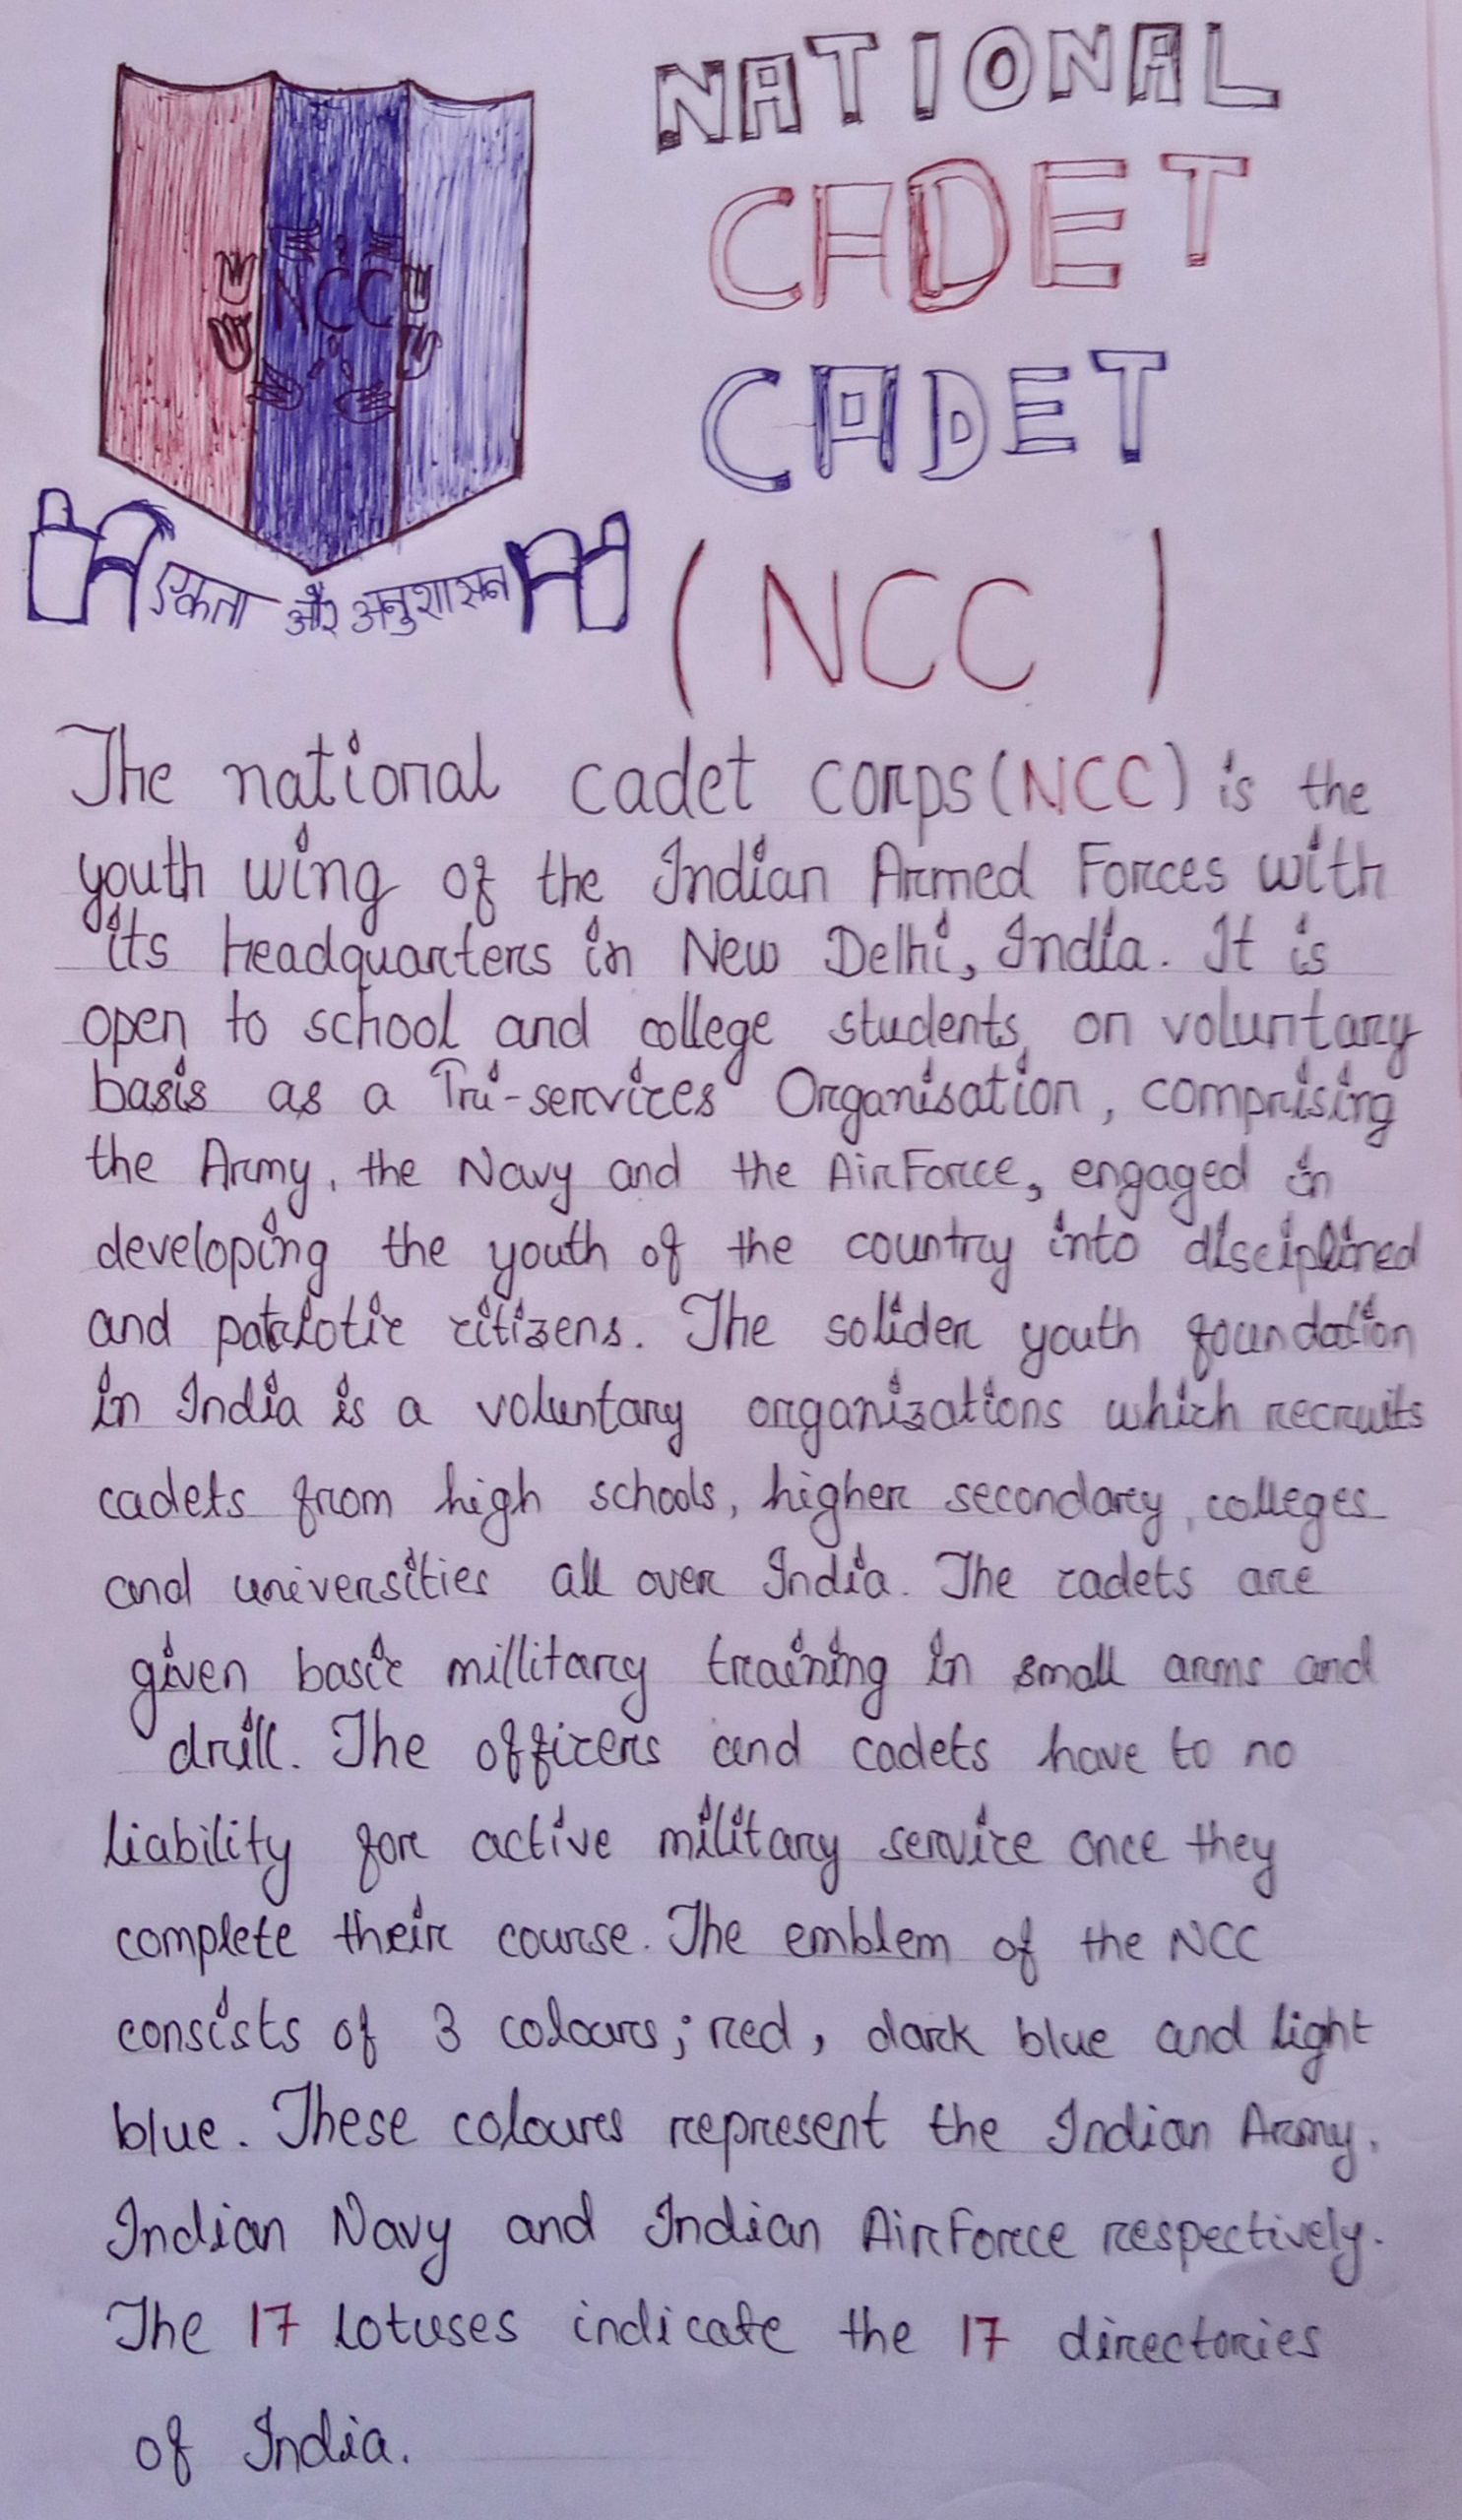 NATIONAL
CADET
CADET
(NCC)
NCC
एकता और अनुशासन
The national cadet corps (NCC) is the
youth wing of the Indian Armed Forces with
its headquarters in New Delhi, India. It is
open to school and college students on voluntary
basis as a Tri-services Organisation, comprising
the Army, the Navy and the AirForce, engaged in
developing the youth of the country into disciplined
and patriotic citizens. The solider youth foundation
in India is a voluntary organizations which recruits
cadets from high schools, higher secondary, colleges
and universities all over India. The cadets are
given basic millitary training in small arms and
drill. The officers and cadets have to no
liability for active military service once they
complete their course. The emblem of the NCC
consists of 3 colours; red, dark blue and light
blue. These colours represent the Indian Army.
Indian Navy and Indian AirForce respectively.
The 17 lotuses indicate the 17 directories
of India.